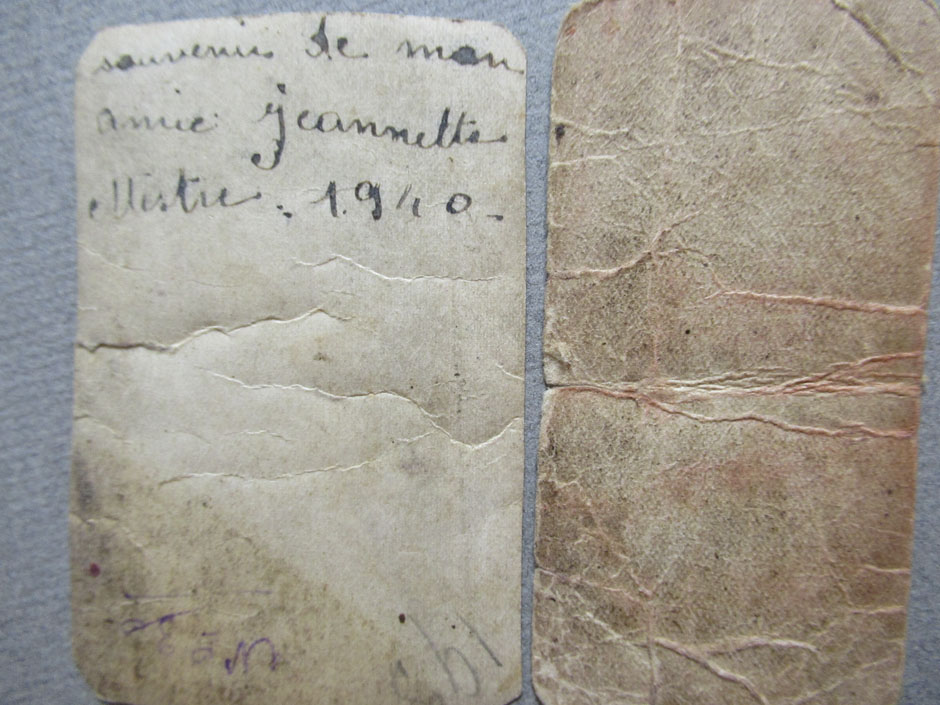 souvenir de mon
amie jeannette
Mistre. 1940-